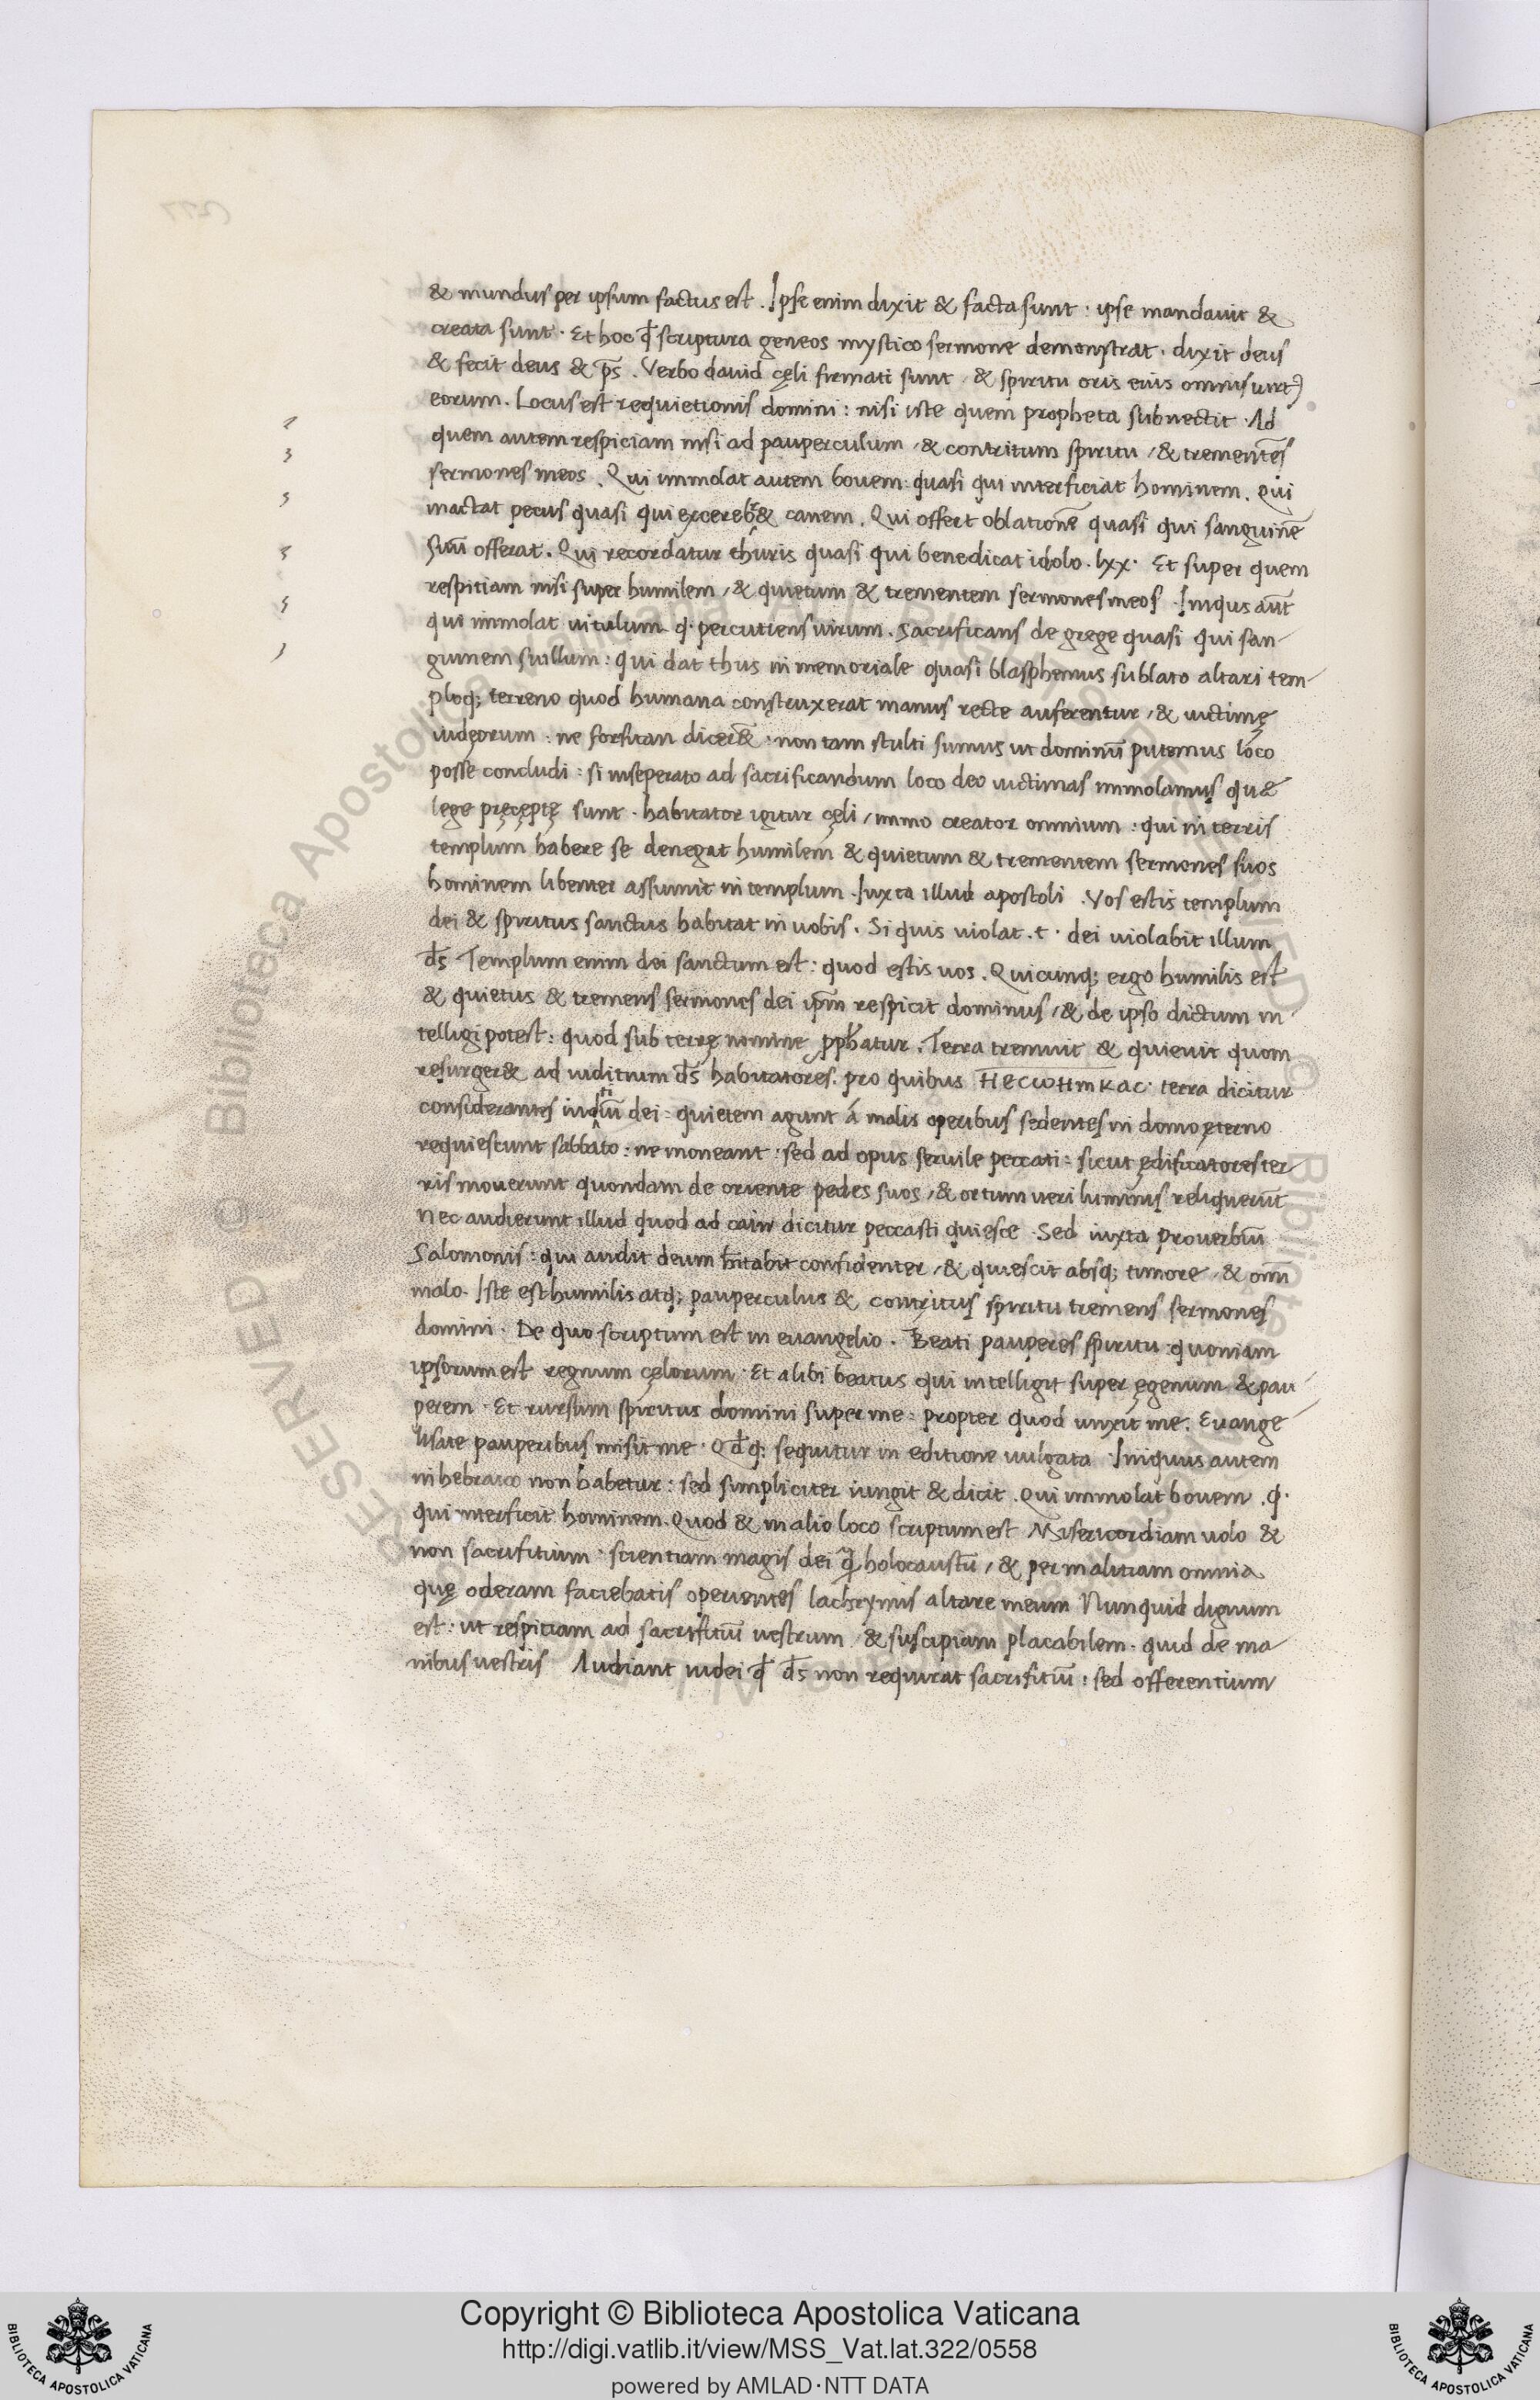 & mundus per ipsum factus est . Ipse enim dixit & facta sunt : ipse mandavit &
creata sunt . Et hoc qđ scriptura geneos mystico sermone demonstrat . dixit deus
& fecit deus & p̄s . Verbo david cęli firmati sunt / & spiritu oris eius omnis virt9
eorum . Locus est requietionis domini : nisi iste quem propheta subnectit . Ad
quem autem respiciam nisi ad pauperculum / & contritum spiritu / & trementē̄s
sermones meos . Qui immolat autem bovem : quasi qui interficiat hominem . Qui
mactat pecus quasi qui excereb& canem . Qui offert oblationē quasi qui sanguinē
suū offerat . Qui recordatur thuris quasi qui benedicat idolo . lxx . Et super quem
respitiam nisi super humilem / & quietum & trementem sermones meos . Iniqus aūt
qui immolat vitulum q . percutiens virum . Sacrificans de grege quasi qui san-
guinem suillum : qui dat thus in memoriale quasi blasphemus sublato altari tem-
ploq; terreno quod humana construxerat manus recte auferentur / & victimę
iudęorum : ne forsitan dicer& : non tam stulti sumus ut dominū putemus loco
posse concludi : si inseperato ad sacrificandum loco deo victimas immolamus quæ
lege pręceptę sunt . habitator igitur cęli / immo creator omnium : qui in terris
templum habere se denegat humilem & quietum & trementem sermones suos
hominem libenter assumit in templum . Iuxta illud apostoli . Vos estis templum
dei & spiritus sanctus habitat in vobis . Si quis violat . t . dei violabit illum
d̄s Templum enim dei sanctum est : quod estis vos . Quicunq; ergo humilis est
& quietus & tremens sermones dei ip̄m respicit dominus / & de ipso dictum in-
telligi potest : quod sub terrę nomine pp̄hatur . Terra tremuit & quievit quom
resurger& ad iuditium d̄s habitatores . pro quibus HECωHTIKAC . terra dicitur
considerantes iudiū dei : quietem agunt á malis operibus sedentes in domo ęterno
requiescunt sabbato : ne moneant : sed ad opus servile peccati : sicut ędificatores ter-
ris moverunt quondam de oriente pedes suos / & ortum veri luminis reliquerūt
Nec audierunt illud quod ad cain dicitur peccasti quiesce . Sed iuxta proverbiū
Salomonis : qui audit deum h̄itabit confidenter / & quiescit absq; timore / & om̄i
malo . Iste est humilis atq; pauperculus & contritus spiritu tremens sermones
domini . De quo scriptum est in evangelio . Beati pauperes spiritu : quoniam
ipsorum est regnum cęlorum . Et alibi beatus qui intelligit super ęgenum & pau-
perem . Et rursum spiritus domini super me : propter quod unxit me . Evange-
lisare pauperibus misit me . Qđq; sequitur in editione vulgata . Iniquus autem
in hebraico non habetur : sed simpliciter iungit & dicit . Qui immolat bovem . q .
qui interficit hominem . Quod & in alio loco scriptum est Misericordiam volo &
non sacrifitium : scientiam magis dei q̄ holocaustū / & per malitiam omnia
quę oderam faciebatis operientes lachrymis altare meum Nunquid dignum
est : ut respitiam ad sacrifitiū vestrum / & suscipiam placabilem . quid de ma-
nibus vestris Audiant iudei qđ d̄s non requirat sacrifitiū : sed offerentium
Copyright © Biblioteca Apostolica Vaticana
http://digi.vatlib.it/view/MSS_Vat.lat.322/0558
powered by AMLAD·NTT DATA
BIBLIOTECA APOSTOLICA VATICANA
BIBLIOTECA APOSTOLICA VATICANA